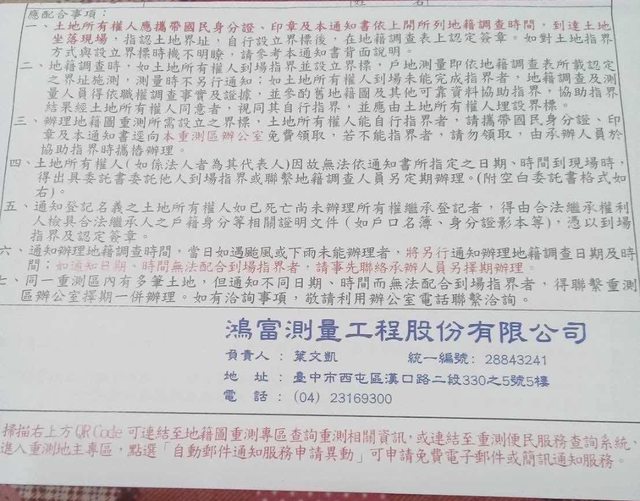 應配合事項：
一、土地所有權人應攜帶國民身分證、印章及本通知書依上開所列地籍調查時間，到達土地
坐落現場，指認土地界址、自行設立界標後，在地籍調查表上認定簽章。如對土地指界
方式與設立界標時機不明瞭，請參考本通知書背面說明。
二、地籍調查時，如土地所有權人到場指界並設立界標，戶地測量即依地籍調查表所載認定
之界址施測，測量時不另行通知；如土地所有權人到場未能完成指界者，地籍調查及測
量人員得依職權調查事實及證據，並參酌舊地籍圖及其他可靠資料協助指界，協助指界
結果經土地所有權人同意者，視同其自行指界，並應由土地所有權人埋設界標。
三、辦理地籍圖重測所需設立之界標，土地所有權人能自行指界者，請攜帶國民身分證、印
章及本通知書逕向本重測區辦公室免費領取，若不能指界者，請勿領取，由承辦人員於
協助指界時攜恪辦理。
四、土地所有權人(如係法人者為其代表人)因故無法依通知書所指定之日期、時間到現場時，
得出具委託書委託他人到場指界或聯繫地籍調查人員另定期辦理。(附空白委託書格式如
右)。
五、通知登記名義之土地所有權人如已死亡尚未辦理所有權繼承登記者，得由合法繼承權利
人檢具合法繼承人之戶籍身分等相關證明文件（如戶口名簿、身分證影本等），憑以到場
指界及認定簽章。
六、通知辦理地籍調查時間，當日如遇颱風或下雨未能辦理者，將另行通知辦理地籍調查日期及時
間；如通知日期、時間無法配合到場指界者，請事先聯絡承辦人員另擇期辦理。
七、同一重測區內有多筆土地，但通知不同日期、時間而無法配合到場指界者，得聯繫重測
區辦公室擇期一併辦理。如有洽詢事項，敬請利用辦公室電話聯繫洽詢。
鴻富測量工程股份有限公司
負責人：葉文凱 統一編號：28843241
地 址：臺中市西屯區漢口路二段330之5號5樓
電 話：(04) 23169300
掃描右上方QR Code 可連結至地籍圖重測專區查詢重測相關資訊，或連結至重測便民服務查詢系統，
進入重測地主專區，點選「自動郵件通知服務申請異動」可申請免費電子郵件或簡訊通知服務。